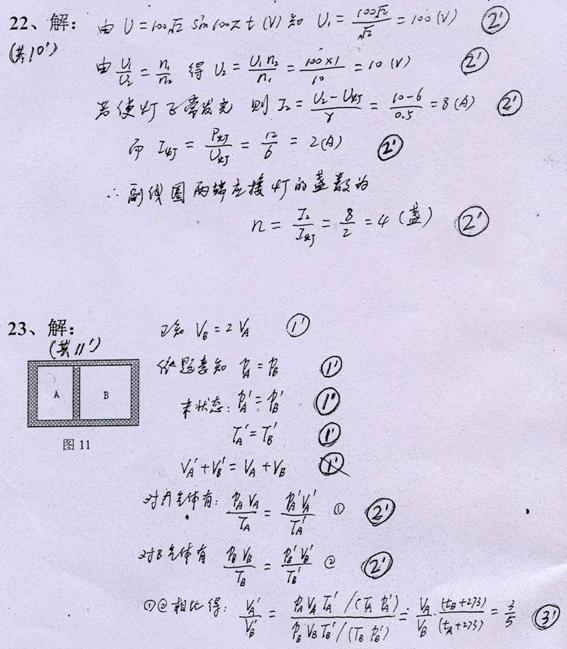 22、解： 由 U=100√2 sin 100πt (V) 知 U₁ = 100√2/√2 = 100 (V) 2'
(共10')
由 U₁/U₂ = n₁/n₂ 得 U₂ = U₁n₂/n₁ = 100×1/10 = 10 (V) 2'
若使灯正常发光 则 I₂ = (U₂-U灯)/r = (10-6)/0.5 = 8 (A) 2'
而 I灯 = P灯/U灯 = 12/6 = 2(A) 2'
∴ 副线圈两端应接灯的盏数为
n = I₂/I灯 = 8/2 = 4 (盏) 2'
23、解： 已知 V_B = 2V_A 1'
(共11')
依题意知 P_A = P_B 1'
A B
末状态: P_A' = P_B' 1'
T_A' = T_B' 1'
图 11
V_A' + V_B' = V_A + V_B 1'
对A气体有: P_A V_A/T_A = P_A' V_A'/T_A' ① 2'
对B气体有 P_B V_B/T_B = P_B' V_B'/T_B' ② 2'
①②相比得: V_A'/V_B' = P_A V_A T_A'/(T_A P_A') / P_B V_B T_B'/(T_B P_B') = V_A/V_B · (t_B+273)/(t_A+273) = 3/5 3'